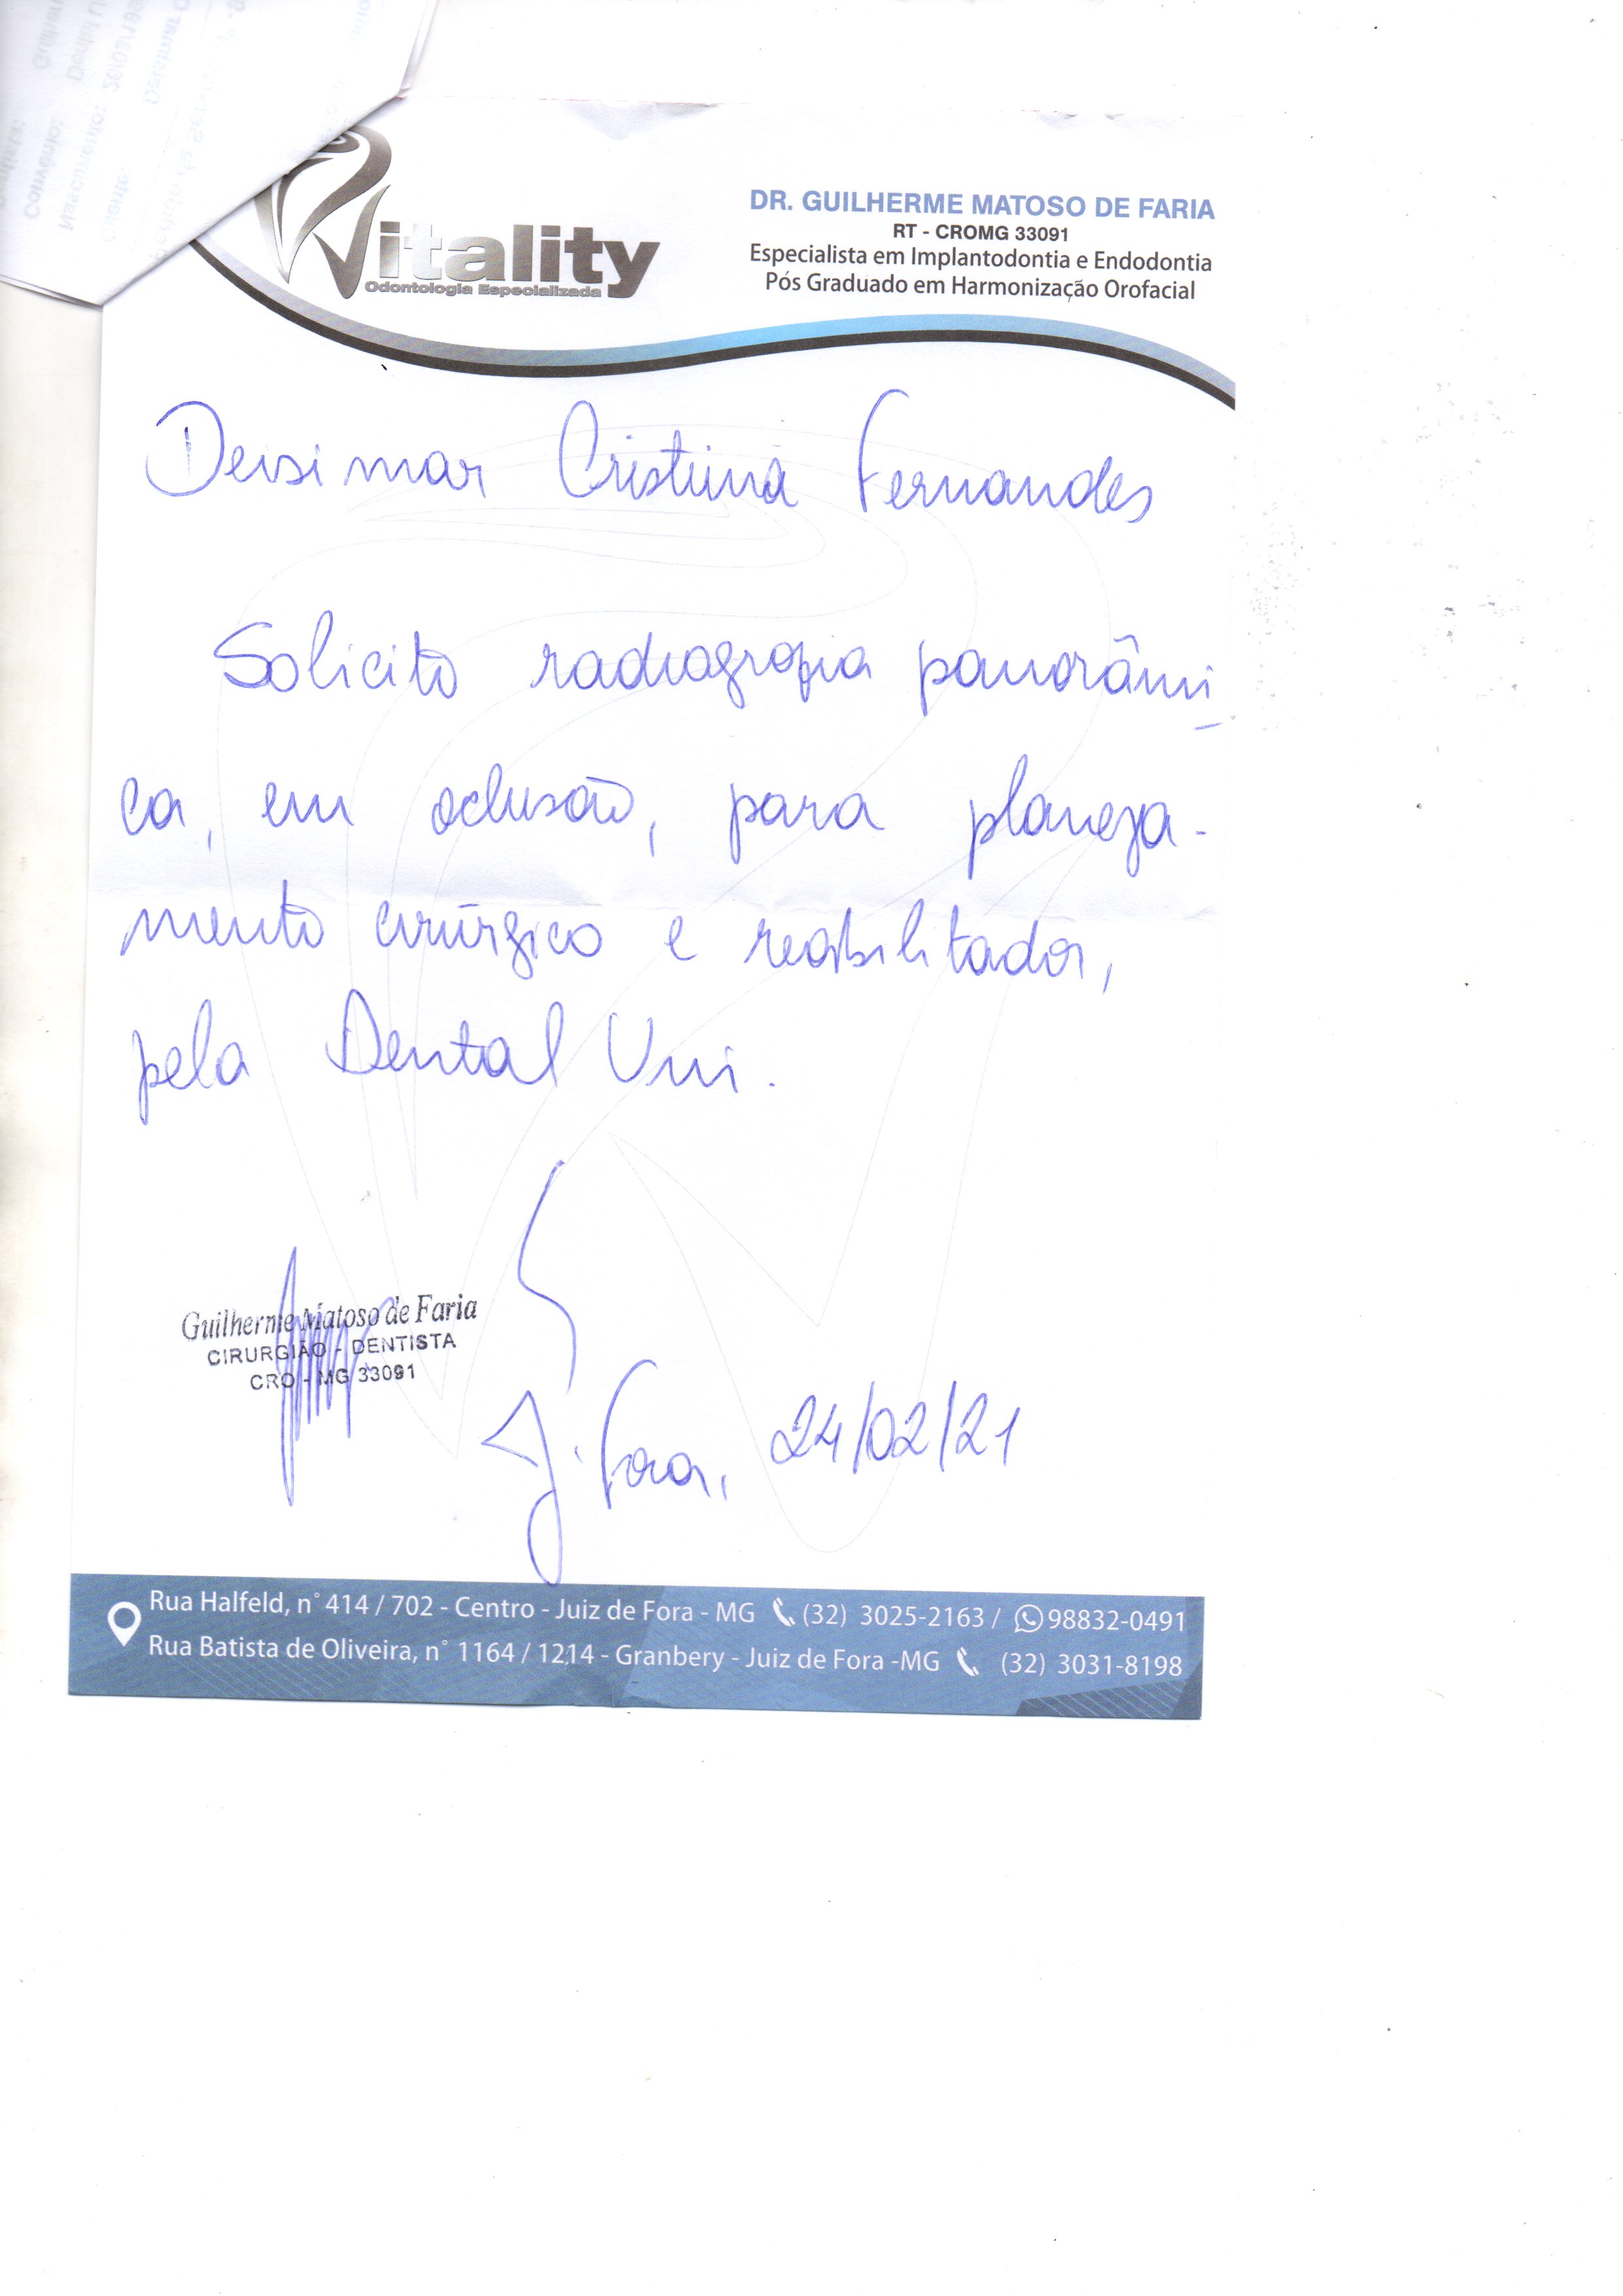 Vitality
Odontologia Especializada
DR. GUILHERME MATOSO DE FARIA
RT - CROMG 33091
Especialista em Implantodontia e Endodontia
Pós Graduado em Harmonização Orofacial
Deisimar Cristina Fernandes
Solicito radiografia panorâmi
ca, em oclusão, para planeja-
mento cirúrgico e reabilitador,
pela Dental Uni.
Guilherme Matoso de Faria
CIRURGIÃO - DENTISTA
CRO - MG 33091
J. Fora, 24/02/21
Rua Halfeld, n° 414 / 702 - Centro - Juiz de Fora - MG (32) 3025-2163 / 98832-0491
Rua Batista de Oliveira, n° 1164 / 1214 - Granbery - Juiz de Fora -MG (32) 3031-8198
Convênio: Dental U
Nascimento: